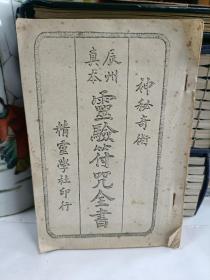 神秘奇術
辰州
真本
靈驗符咒全書
精靈學社印行